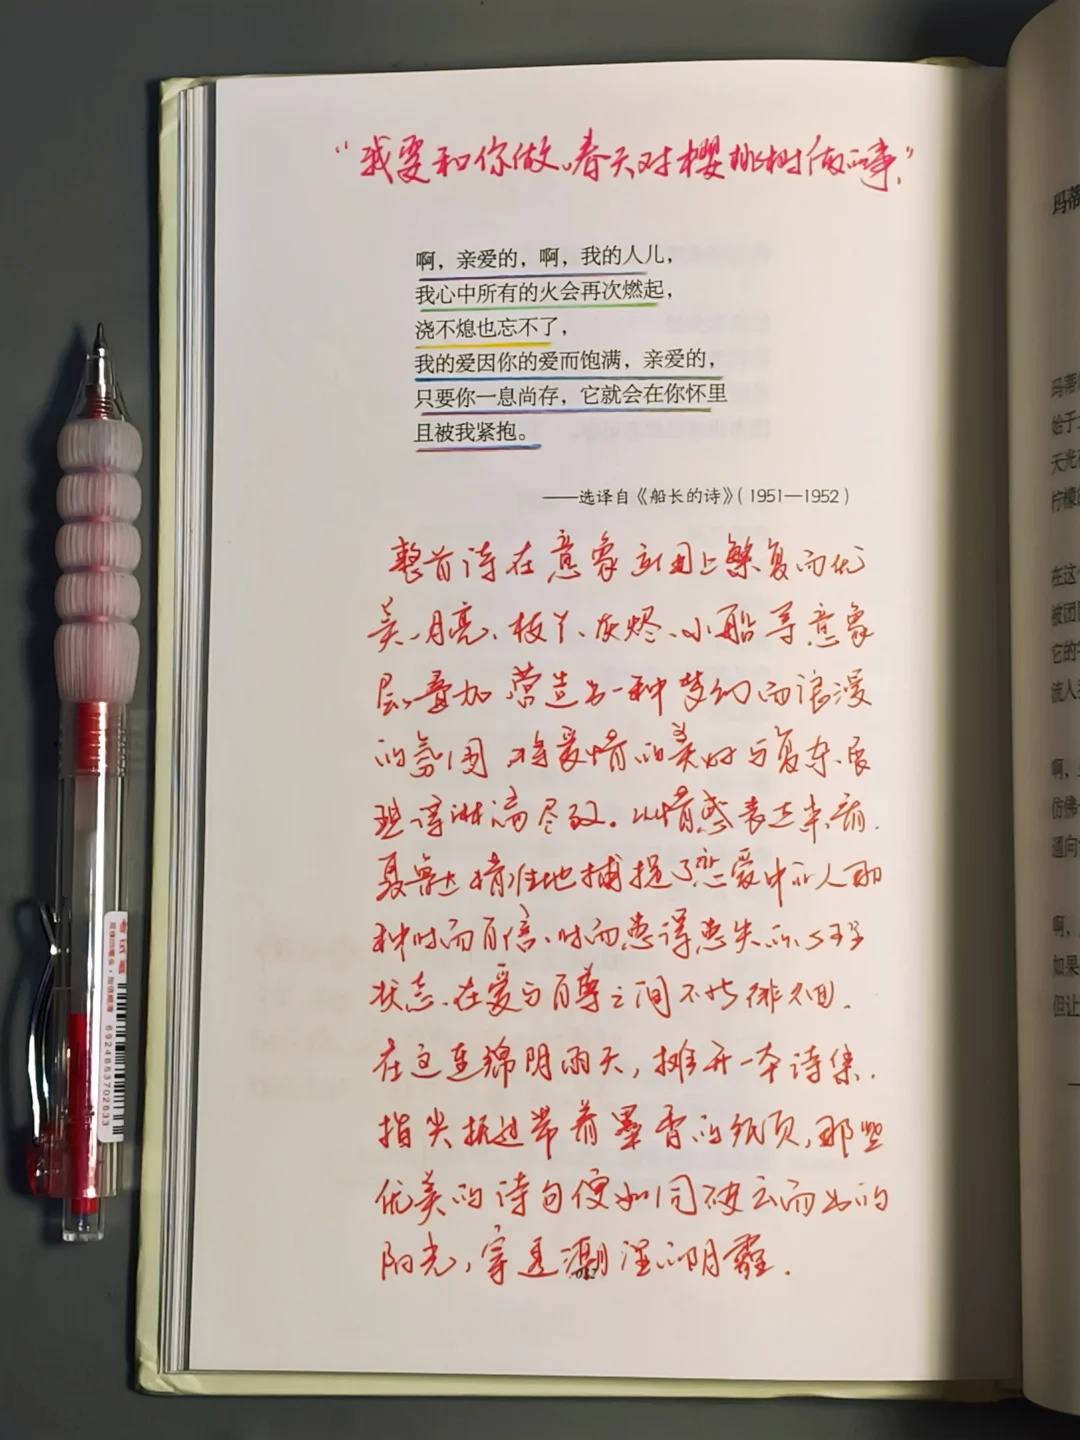 “我要和你做,春天对樱桃树做的事,”
啊，亲爱的，啊，我的人儿，
我心中所有的火会再次燃起，
浇不熄也忘不了，
我的爱因你的爱而饱满，亲爱的，
只要你一息尚存，它就会在你怀里
且被我紧抱。
——选译自《船长的诗》（1951—1952）
整首诗在意象运用上繁复而优
美、月亮、枝丫、灰烬、小船等意象
层层叠加 营造出一种梦幻而浪漫
的氛围 将爱情的美好与复杂展
现得淋漓尽致。从情感表达来看.
聂鲁达精准地捕捉了恋爱中的人那
种时而自信、时而患得患失的
状态.在爱与自尊之间不断徘徊.
在这连绵阴雨天，摊开一本诗集.
指尖抚过带着墨香的纸页,那些
优美的诗句便如同破云而出的
阳光，穿透潮湿的阴霾.
082
考试笔
6924863702633
玛蒂
玛蒂
始于
天光
柠檬
在这
被团
它的
流人
啊，
仿佛
通向
啊，
如果
但让